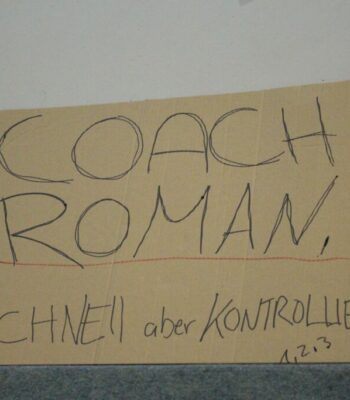 COACH
ROMAN.
CHNEll aber KONTROLLIE
1,2,3